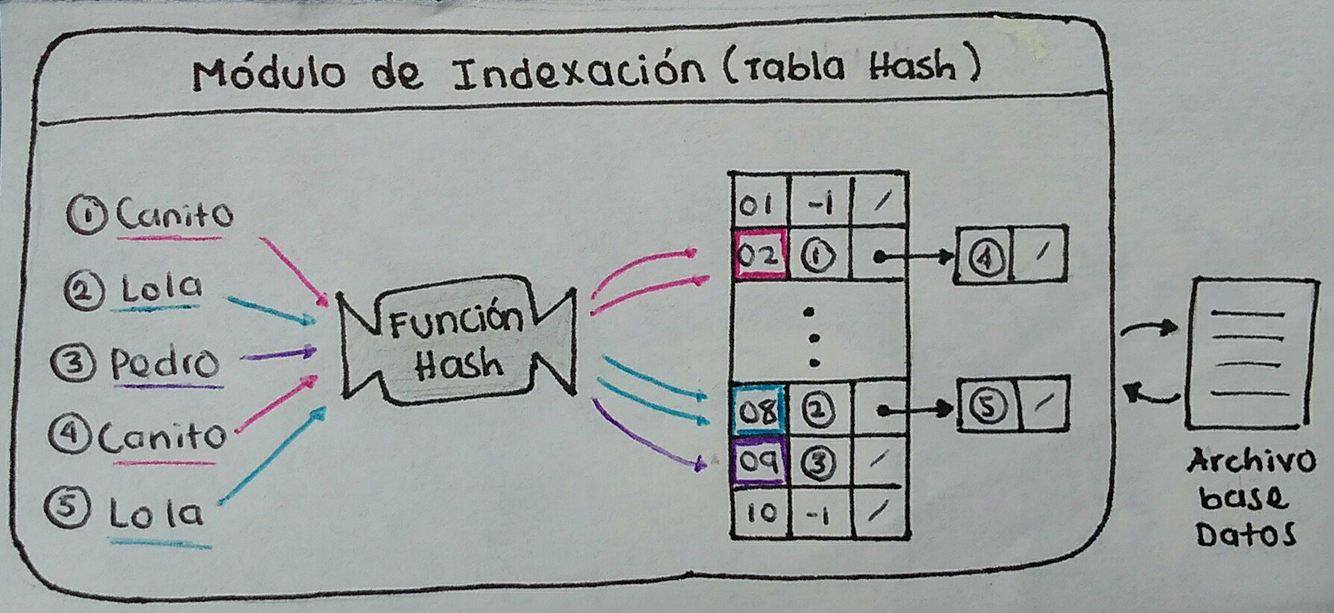 Módulo de Indexación (Tabla Hash)
① Canito
② Lola
③ Pedro
④ Canito
⑤ Lola
Función
Hash
01 -1 /
02 ① ④ /
08 ② ⑤ /
09 ③ /
10 -1 /
Archivo
base
Datos